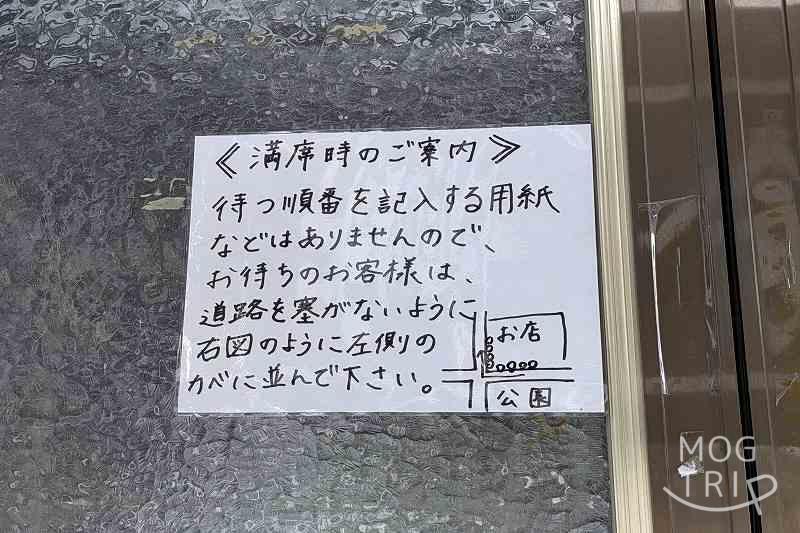 ≪満席時のご案内≫
待つ順番を記入する用紙
などはありませんので、
お待ちのお客様は、
道路を塞がないように
右図のように左側の
カベに並んで下さい。
お店
公園
MOG
TRIP